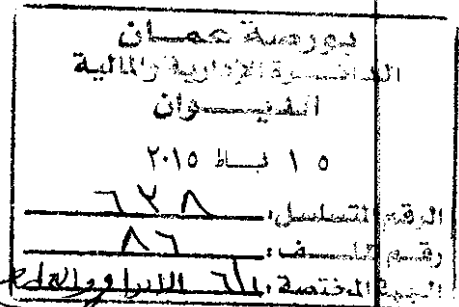 بورصة عمان
الدائرة الإدارية والمالية
الديوان
١٥ بـاط ٢٠١٥
الرقم المتسلسل: ٦٧٨
رقم الملف: ٨٦
الجهة المختصة: